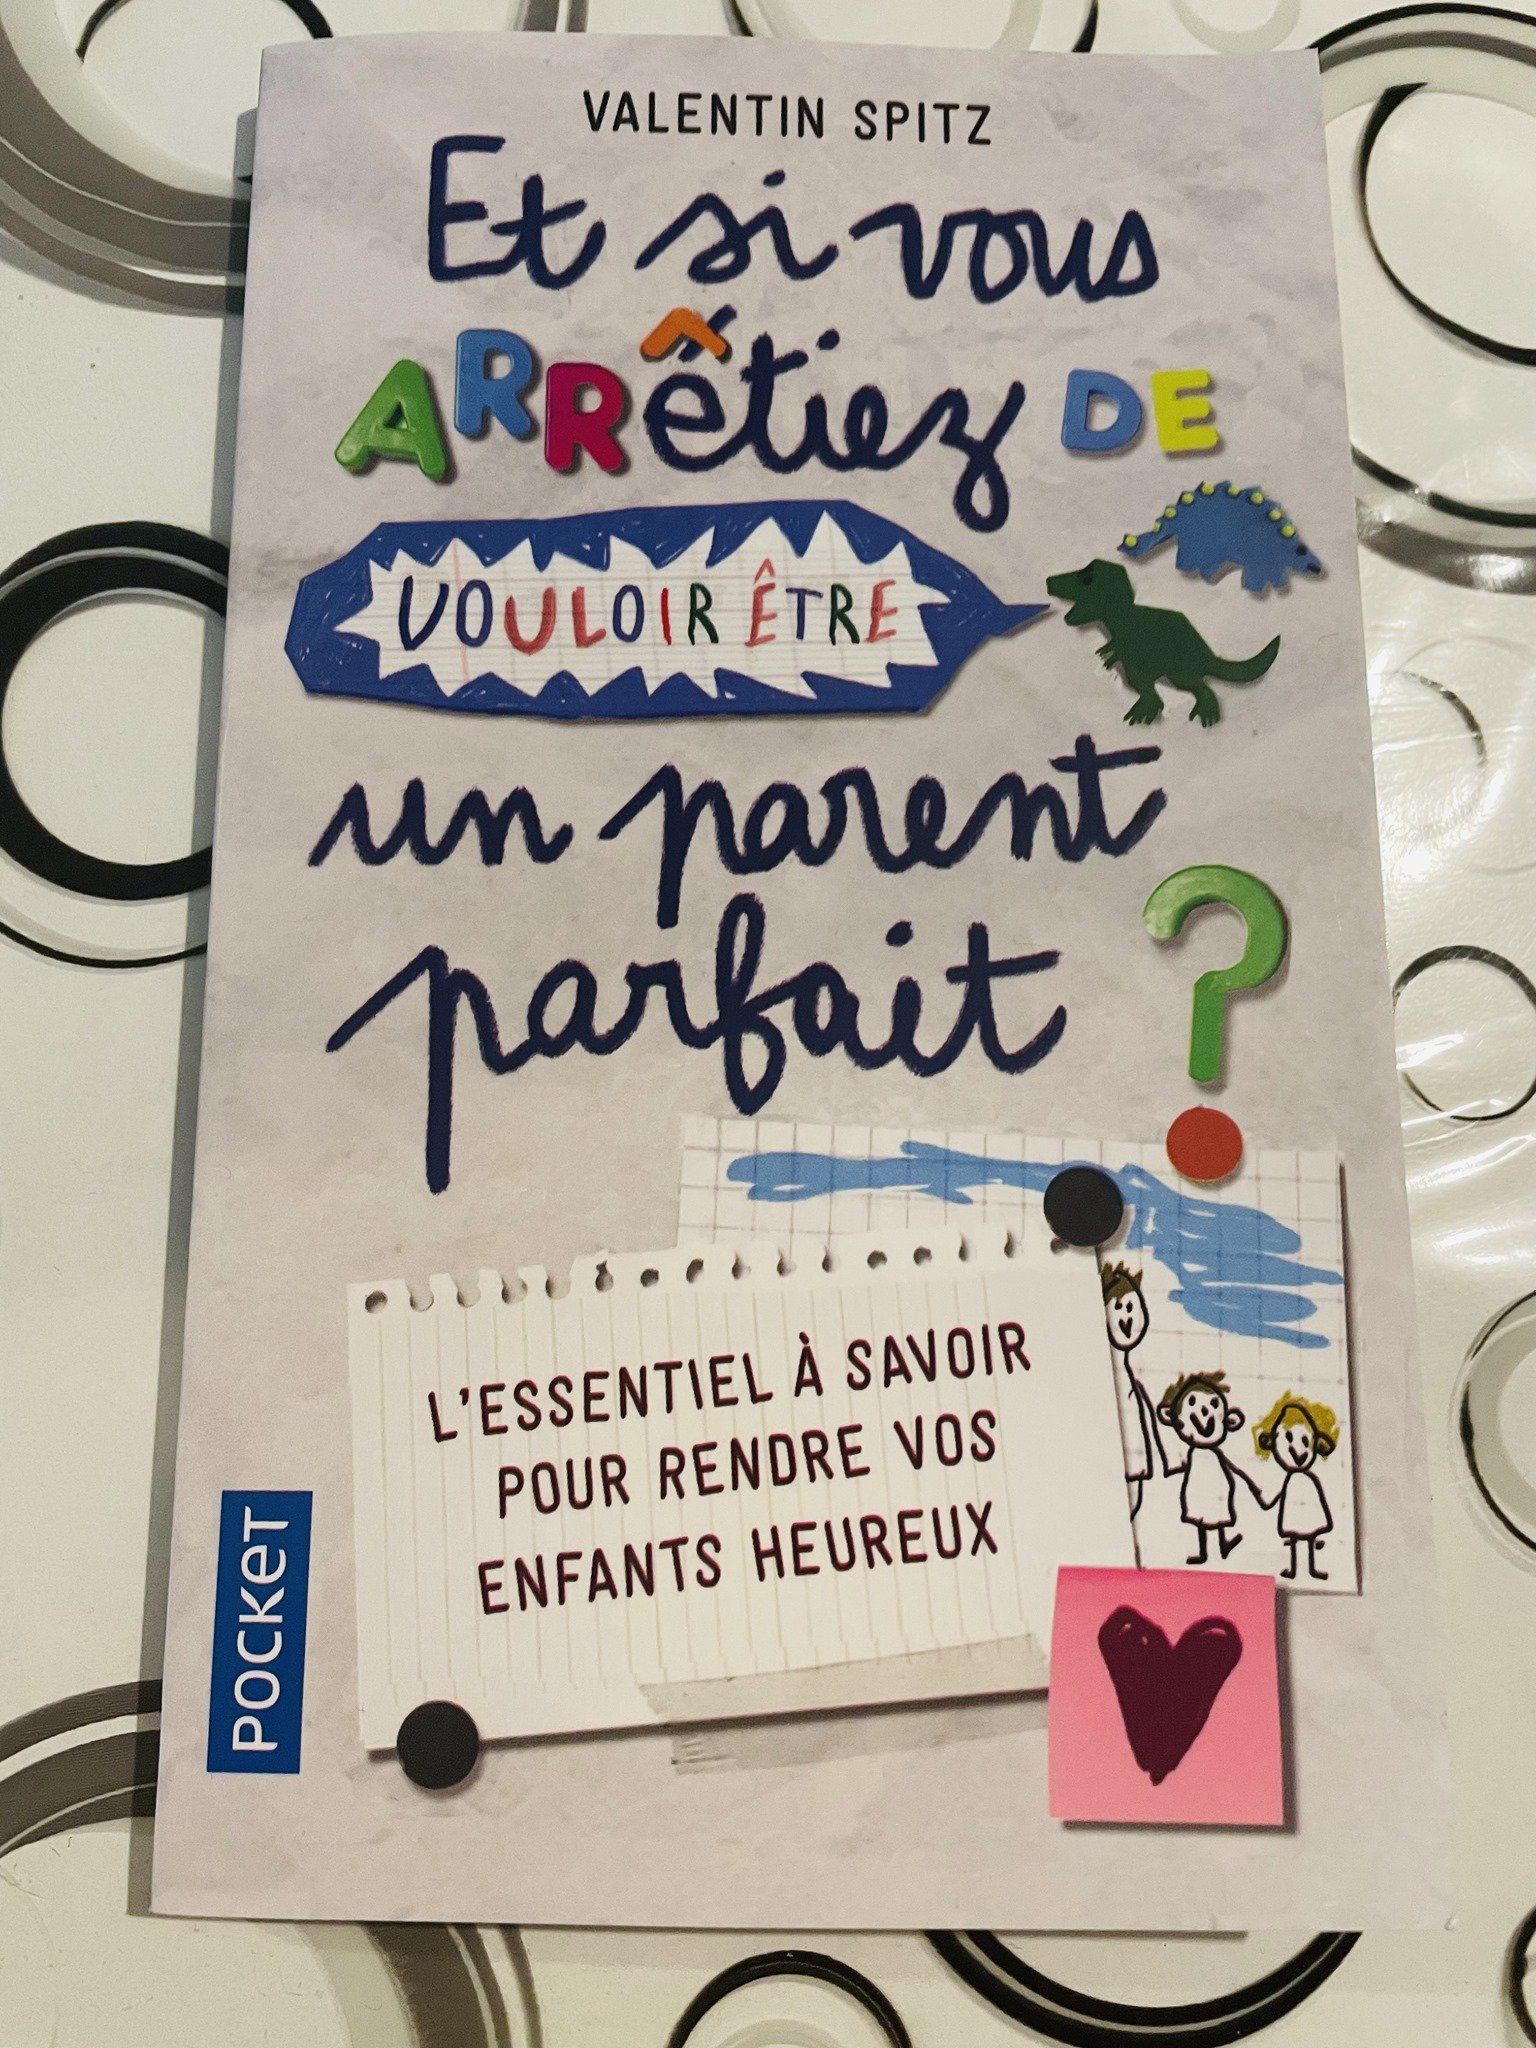 VALENTIN SPITZ
Et si vous
ARRêtiez DE
VOULOIR ÊTRE
un parent
parfait ?
L'ESSENTIEL À SAVOIR
POUR RENDRE VOS
ENFANTS HEUREUX
POCKET